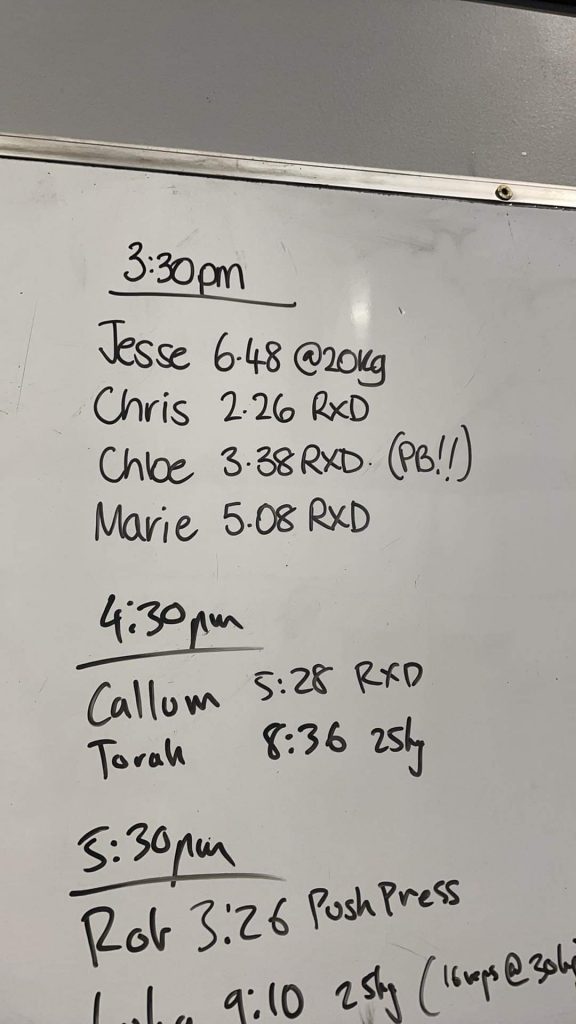 3:30pm
Jesse 6.48 @20kg
Chris 2.26 RXD
Chloe 3.38 RXD. (PB!!)
Marie 5.08 RXD
4:30pm
Callum 5:28 RXD
Torah 8:36 25kg
5:30pm
Rob 3:26 Push Press
9:10 25kg (16reps @ 30kg